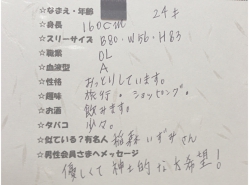 ☆なまえ・年齢 24才
☆身長 160cm
☆スリーサイズ B80・W56・H83
☆職業 OL
☆血液型 A
☆性格 おっとりしています。
☆趣味 旅行。ショッピング。
☆お酒 飲みます。
☆タバコ 少々。
☆似ている?有名人 稲森いずみさん
☆男性会員さまへメッセージ
優しくて紳士的な方希望!